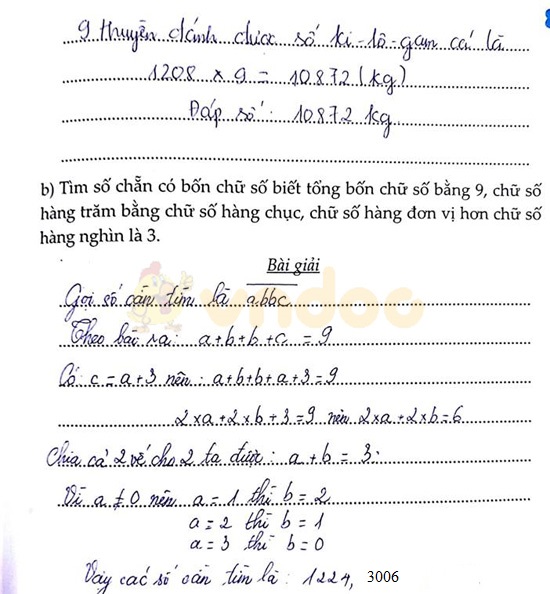 9 thuyền đánh được số ki-lô-gam cá là
1208 x 9 = 10872 (kg)
Đáp số: 10872 kg
b) Tìm số chẵn có bốn chữ số biết tổng bốn chữ số bằng 9, chữ số
hàng trăm bằng chữ số hàng chục, chữ số hàng đơn vị hơn chữ số
hàng nghìn là 3.
Bài giải
Gọi số cần tìm là abbc
vndoc
Theo bài ra: a+b+b+c = 9
Có: c = a+3 nên: a+b+b+a+3 = 9
2xa+2xb+3=9 nên 2xa+2xb=6
Chia cả 2 vế cho 2 ta được: a + b = 3.
Vì a ≠ 0 nên a = 1 thì b = 2
a = 2 thì b = 1
a = 3 thì b = 0
Vậy các số cần tìm là: 1224, 3006